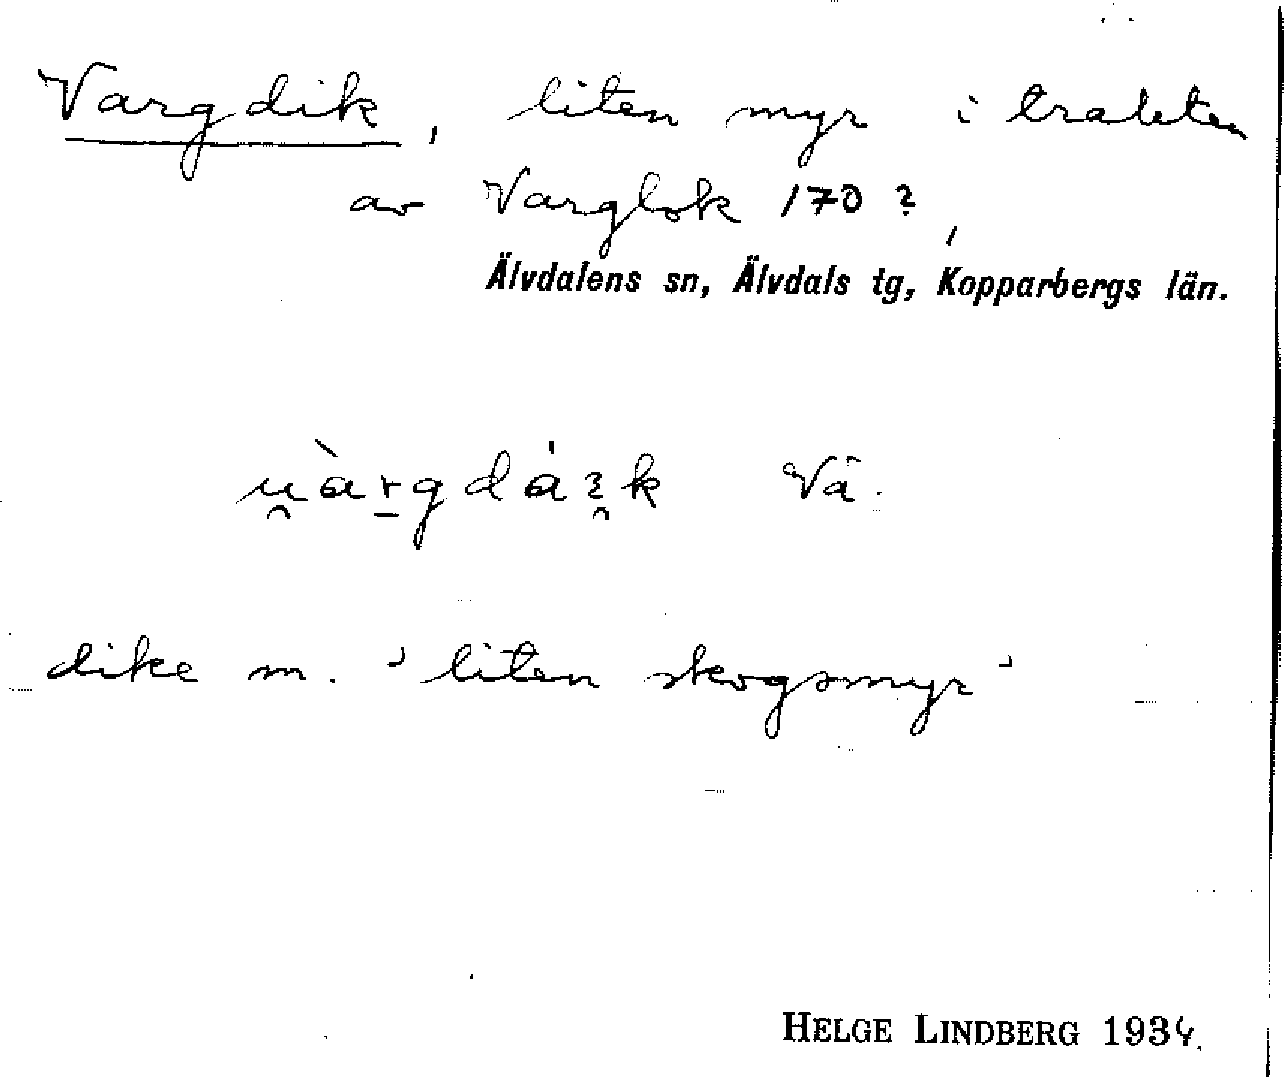 Vargdik, liten myr i trakten
av Varglok 170?,
Älvdalens sn, Älvdals tg, Kopparbergs län.
u̯àr̠gdáɿ̯k Vä.
dike m. 'liten skogsmyr'
HELGE LINDBERG 1934.